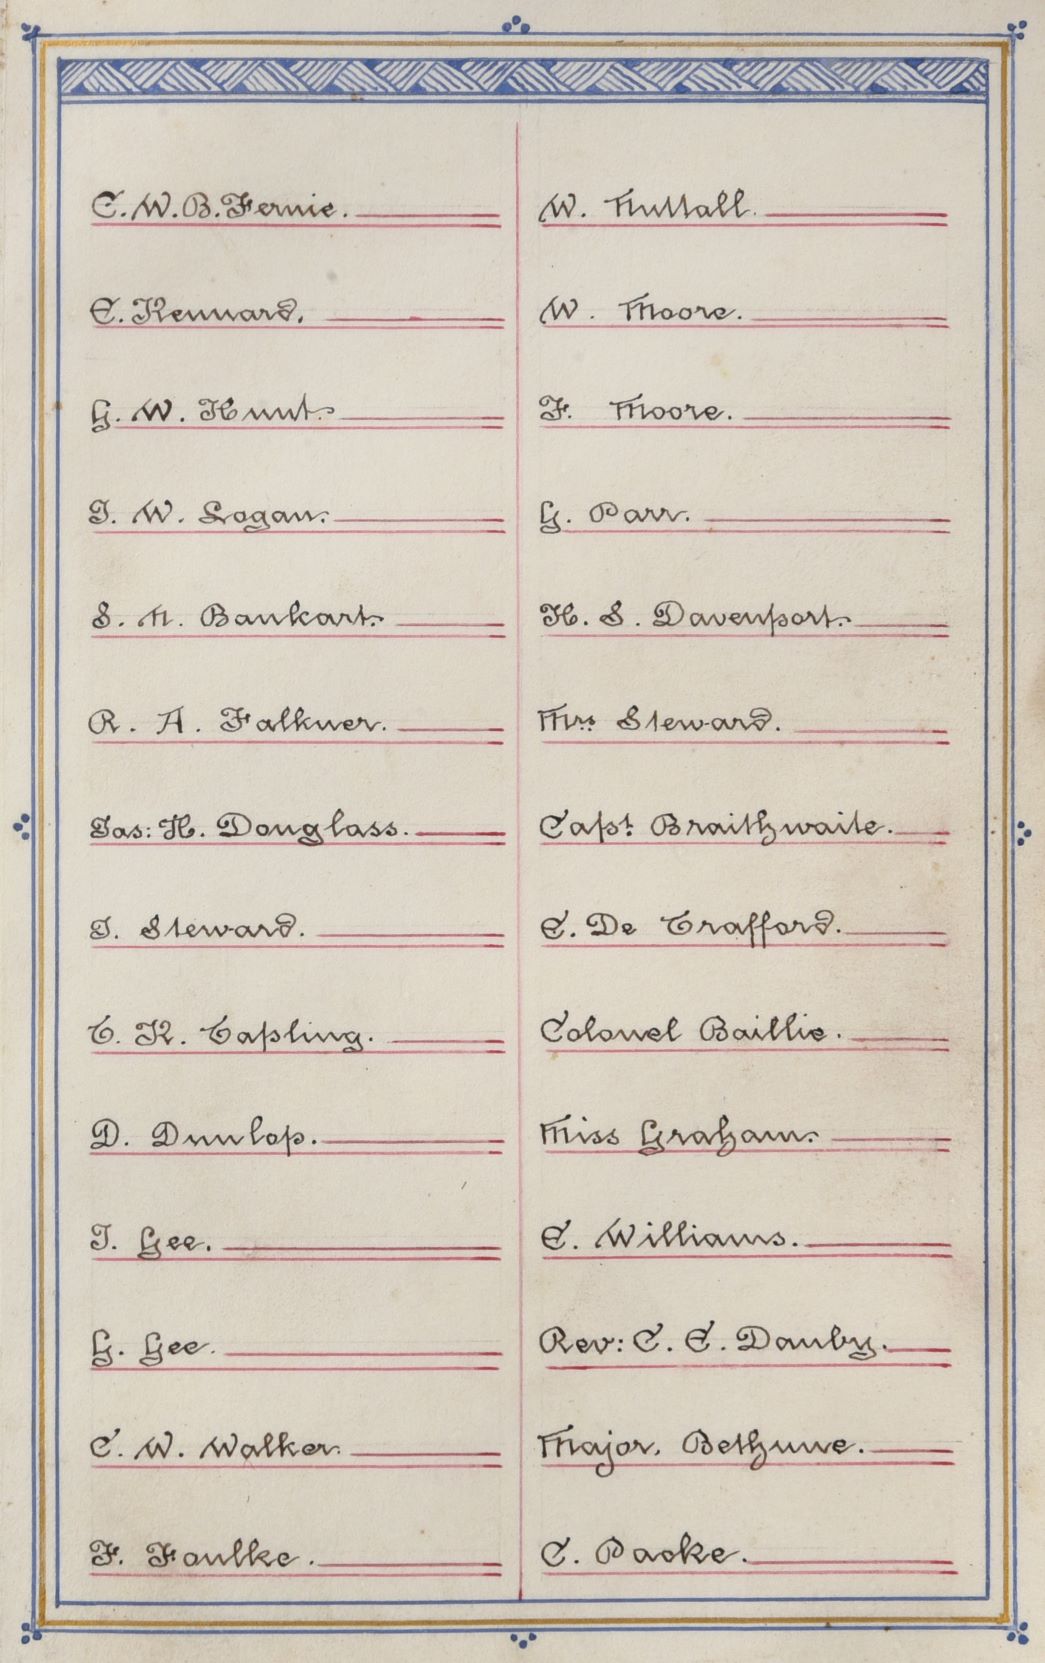 C. W. B. Fernie.
E. Kennard.
G. W. Hunt.
J. W. Logan.
S. N. Bankart.
R. A. Falkner.
Jas: H. Douglass.
J. Steward.
T. K. Tapling.
D. Dunlop.
J. Gee.
G. Gee.
C. W. Walker.
F. Foulke.
W. Nuttall.
W. Moore.
F. Moore.
G. Parr.
H. S. Davenport.
Mrs. Steward.
Capt. Braithwaite.
E. De Trafford.
Colonel Baillie.
Miss Graham.
E. Williams.
Rev: C. E. Danby.
Major. Bethune.
C. Packe.